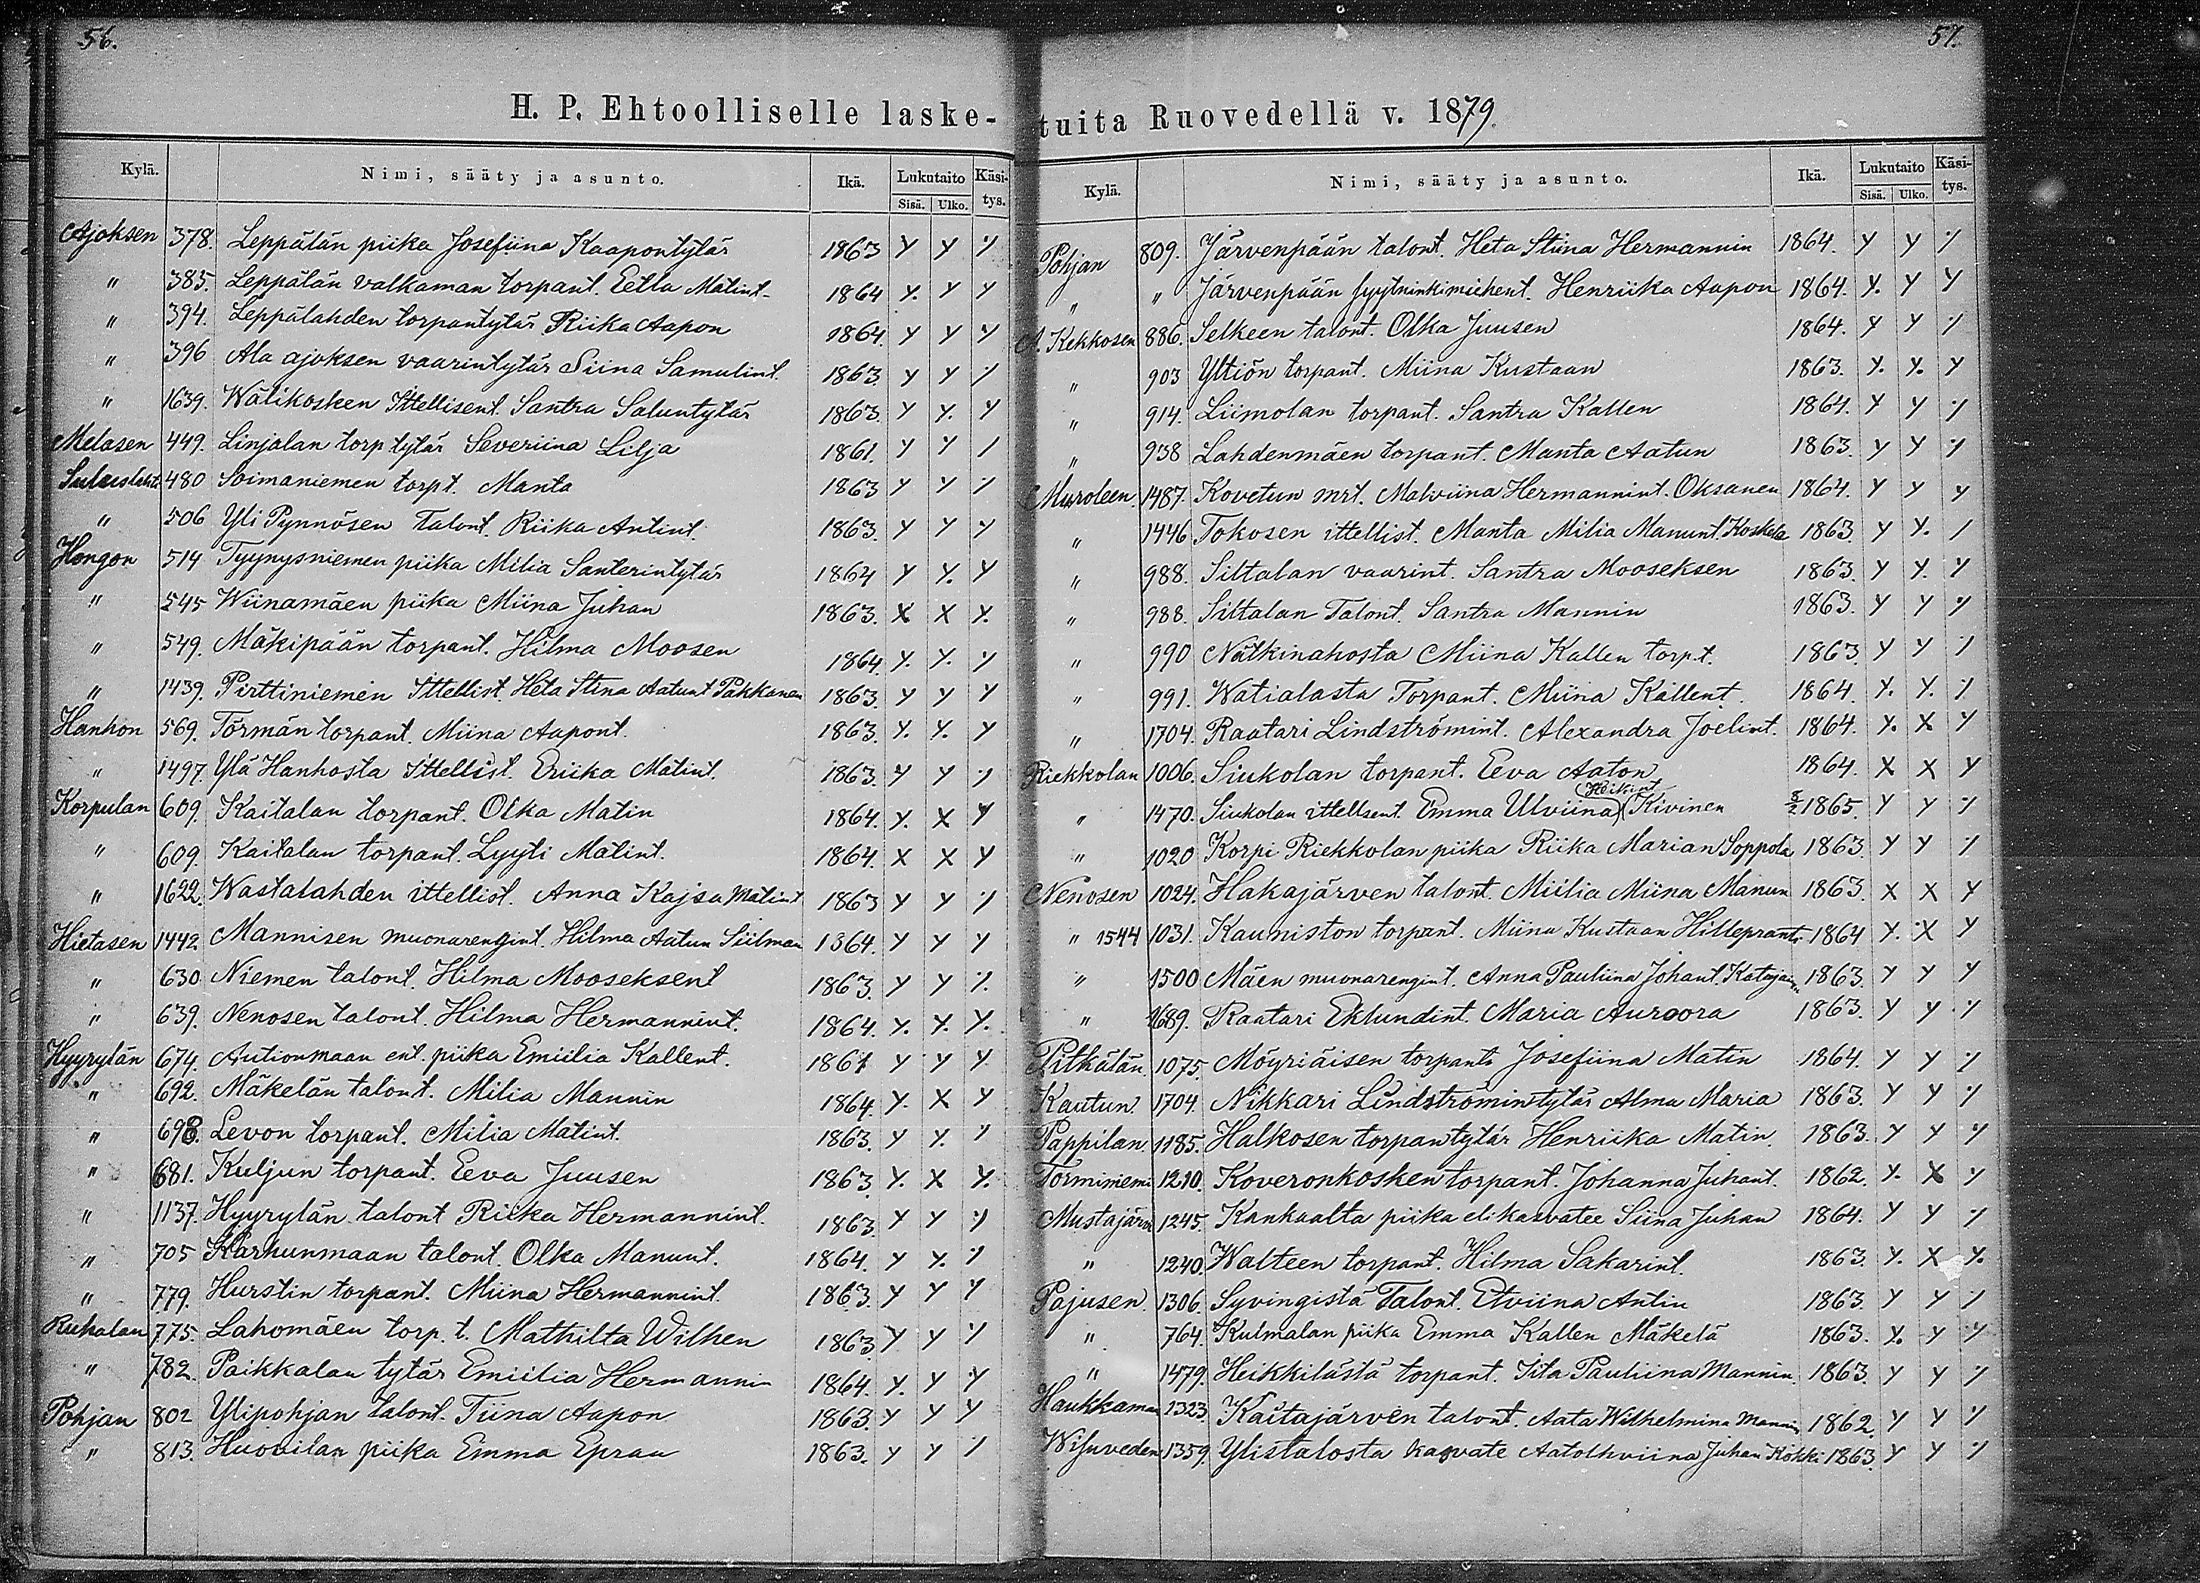 56.
H. P. Ehtoolliselle laske-
Kylä. Nimi, sääty ja asunto. Ikä. Lukutaito Käsi-
Sisä. Ulko. tys.
Ajoksen 378. Leppälän piika Josefiina Kaapontytär 1863 y y ·/.
" 385. Leppälän valkaman torpant. Eetla Matint. 1864 y. y y
" 394. Leppälahden torpantytär Riika Aapon 1864. y y y
" 396 Ala ajoksen vaarintytär Siina Samulint. 1863. y y ·/.
" 1639. Wälikosken Ittellisent. Santra Saluntytär 1863. y y. y
Melasen 449. Linjalan torp. tytär Severiina Lilja 1861. y y /
480 Soimaniemen torpt. Manta 1863 y y ·/.
" 506 Yli Pynnösen Talont. Riika Antint. 1863. y y y
Hongon 514 Tyynysniemen piika Milia Santerintytär 1864 y y. y
" 545 Wiinamäen piika Miina Juhan 1863. x x y.
" 549. Mäkipään torpant. Hilma Moosen 1864. y. y. y
" 1439. Pirttiniemen Ittellist. Heta Stina Aatunt Pakkanen 1863. y y y
Hanhon 569. Törmän torpant. Miina Aapont. 1863. y. y. y
" 1497. Ylä Hanhosta Ittellist. Eriika Matint. 1863. y y ·/.
Korpulan 609. Kaitalan torpant. Olka Matin 1864. y. x y
" 609. Kaitalan torpant. Lyyti Matint. 1864. x x y
" 1622. Wastalahden ittellist. Anna Kajsa Matint 1863 y y ·/.
Hietasen 1442. Mannisen muonarengint. Hilma Aatun Siilman 1864. y y y
" 630. Niemen talont. Hilma Mooseksent 1863. y y ·/.
" 639. Nenosen talont. Hilma Hermannint. 1864. y. y. y.
Hyyrylän 674. Autionmaan ent. piika Emiilia Kallent. 1861 y y y
" 692. Mäkelän talont. Milia Mannin 1864. y. x y
" 698. Levon torpant. Milia Matint. 1863. y y. y
" 681. Kuljun torpant. Eeva Juusen 1863. y. x y.
" 1137. Hyyrylän talont Riika Hermannint. 1863. y y ·/.
" 705 Karhunmaan talont. Olka Manunt. 1864. y y. ·/.
" 779. Hurstin torpant. Miina Hermannint. 1863. y y y
Ruhalan 775. Lahomäen torp. t. Mathilta Wilhen 1863. y y y
" 782. Paikkalan tytär Emiilia Hermannin 1864. y. y y
Pohjan 802 Ylipohjan talont. Tiina Aapon 1863. y y y
" 813. Huovilan piika Emma Epran 1863. y y ·/.
57.
tuita Ruovedellä v. 1879.
Kylä. Nimi, sääty ja asunto. Ikä. Lukutaito Käsi-
Sisä. Ulko. tys.
Pohjan 809. Järvenpään talont. Heta Stiina Hermannin 1864. y y ·/.
" " Järvenpään fyytninkimiehent. Henriika Aapon 1864. y. y y
A. Kekkosen 886. Selkeen talont. Olka Juusen 1864. y y ·/.
" 903 Yltiön torpant. Miina Kustaan 1863. y. y. y
" 914. Liimolan torpant. Santra Kallen 1864. y y ·/.
" 938 Lahdenmäen torpant. Manta Aatun 1863. y y ·/.
Muroleen. 1487. Kovetun mrt. Malviina Hermannint. Oksanen 1864. y y y
" 1446 Tokosen ittellist. Manta Milia Manunt. Koskela 1863. y y. /
" 988. Siltalan vaarint. Santra Mooseksen 1863. y y. y
" 988. Siltalan Talont. Santra Mannin 1863. y y ·/.
" 990 Nätkinahosta Miina Kallen torp.t. 1863. y y ·/.
" 991. Watialasta Torpant. Miina Kallent. 1864. y. y. ·/.
" 1704. Raatari Lindströmint. Alexandra Joelint. 1864. y. x y
Riekkolan 1006. Siukolan torpant. Eeva Aaton 1864. x x y
" 1470. Siukolan ittellsent. Emma Ulviina (Heikint) Kivinen 8/2 1865. y y ·/.
" 1020 Korpi Riekkolan piika Riika Marian Soppola 1863. y y ·/.
Nenosen 1024. Hakajärven talont. Miilia Miina Manun 1863. x x y
" 1544 1031. Kauniston torpant. Miina Kustaan Hilleprantti 1864 y. x y
" 1500 Mäen muonarengint. Anna Pauliina Johant. 1863. y y y
" 1689. Raatari Eklundint. Maria Auroora 1863. y y ·/.
Pitkälän. 1075. Möyriäisen torpant. Josefiina Matin 1864. y y ·/.
Kautun. 1704. Nikkari Lindströmintytär Alma Maria 1863. y y ·/.
Pappilan 1185. Halkosen torpantytär Henriika Matin 1863. y y y
Torminiemi 1210. Koveronkosken torpant. Johanna Juhant. 1862. y. x y
Mustajärven 1245. Kankaalta piika eli kasvatee Siina Juhan 1864. y y ·/.
" 1240. Walteen torpant. Hilma Sakarint. 1863. y. x y.
Pajusen. 1306. Syvingistä Talont. Etviina Antin 1863. y y ·/.
" 764. Kulmalan piika Emma Kallen Mäkelä 1863. y. y y
" 1479. Heikkilästä torpant. Iita Pauliina Mannin. 1863. y y ·/.
Haukkaman 1323. Kaitajärven talont. Aata Wilhelmina Mannin 1862. y y ·/.
Wisuveden 1359. Ylistalosta kasvate Aatolhviina Juhan Kökki 1863. y y ·/.